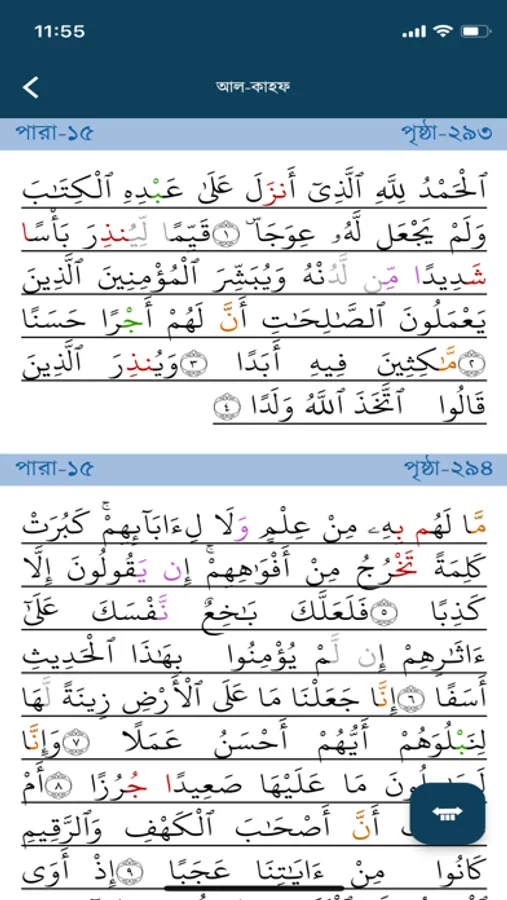 11:55
আল-কাহফ
পারা-১৫ পৃষ্ঠা-২৯৩
ٱلْحَمْدُ لِلَّهِ ٱلَّذِىٓ أَنزَلَ عَلَىٰ عَبْدِهِ ٱلْكِتَـٰبَ
وَلَمْ يَجْعَل لَّهُۥ عِوَجَاۜ ۝١ قَيِّمًا لِّيُنذِرَ بَأْسًا
شَدِيدًا مِّن لَّدُنْهُ وَيُبَشِّرَ ٱلْمُؤْمِنِينَ ٱلَّذِينَ
يَعْمَلُونَ ٱلصَّـٰلِحَـٰتِ أَنَّ لَهُمْ أَجْرًا حَسَنًا
۝٢ مَّـٰكِثِينَ فِيهِ أَبَدًا ۝٣ وَيُنذِرَ ٱلَّذِينَ
قَالُوا ٱتَّخَذَ ٱللَّهُ وَلَدًا ۝٤
পারা-১৫ পৃষ্ঠা-২৯৪
مَّا لَهُم بِهِۦ مِنْ عِلْمٍ وَلَا لِـَٔابَآئِهِمْۚ كَبُرَتْ
كَلِمَةً تَخْرُجُ مِنْ أَفْوَٰهِهِمْۚ إِن يَقُولُونَ إِلَّا
كَذِبًا ۝٥ فَلَعَلَّكَ بَـٰخِعٌ نَّفْسَكَ عَلَىٰٓ
ءَاثَـٰرِهِمْ إِن لَّمْ يُؤْمِنُوا بِهَـٰذَا ٱلْحَدِيثِ
أَسَفًا ۝٦ إِنَّا جَعَلْنَا مَا عَلَى ٱلْأَرْضِ زِينَةً لَّهَا
لِنَبْلُوَهُمْ أَيُّهُمْ أَحْسَنُ عَمَلًا ۝٧ وَإِنَّا
مَا عَلَيْهَا صَعِيدًا جُرُزًا ۝٨ أَمْ
أَنَّ أَصْحَـٰبَ ٱلْكَهْفِ وَٱلرَّقِيمِ
كَانُوا مِنْ ءَايَـٰتِنَا عَجَبًا ۝٩ إِذْ أَوَى